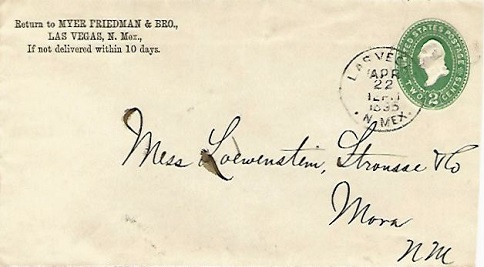 Return to MYER FRIEDMAN & BRO.,
LAS VEGAS, N. Mex.,
If not delivered within 10 days.
UNITED STATES POSTAGE
TWO 2 CENTS
LAS VEGAS
APR
22
1895
N. MEX.
Mess Loewenstein, Strousse & Co
Mora
NM